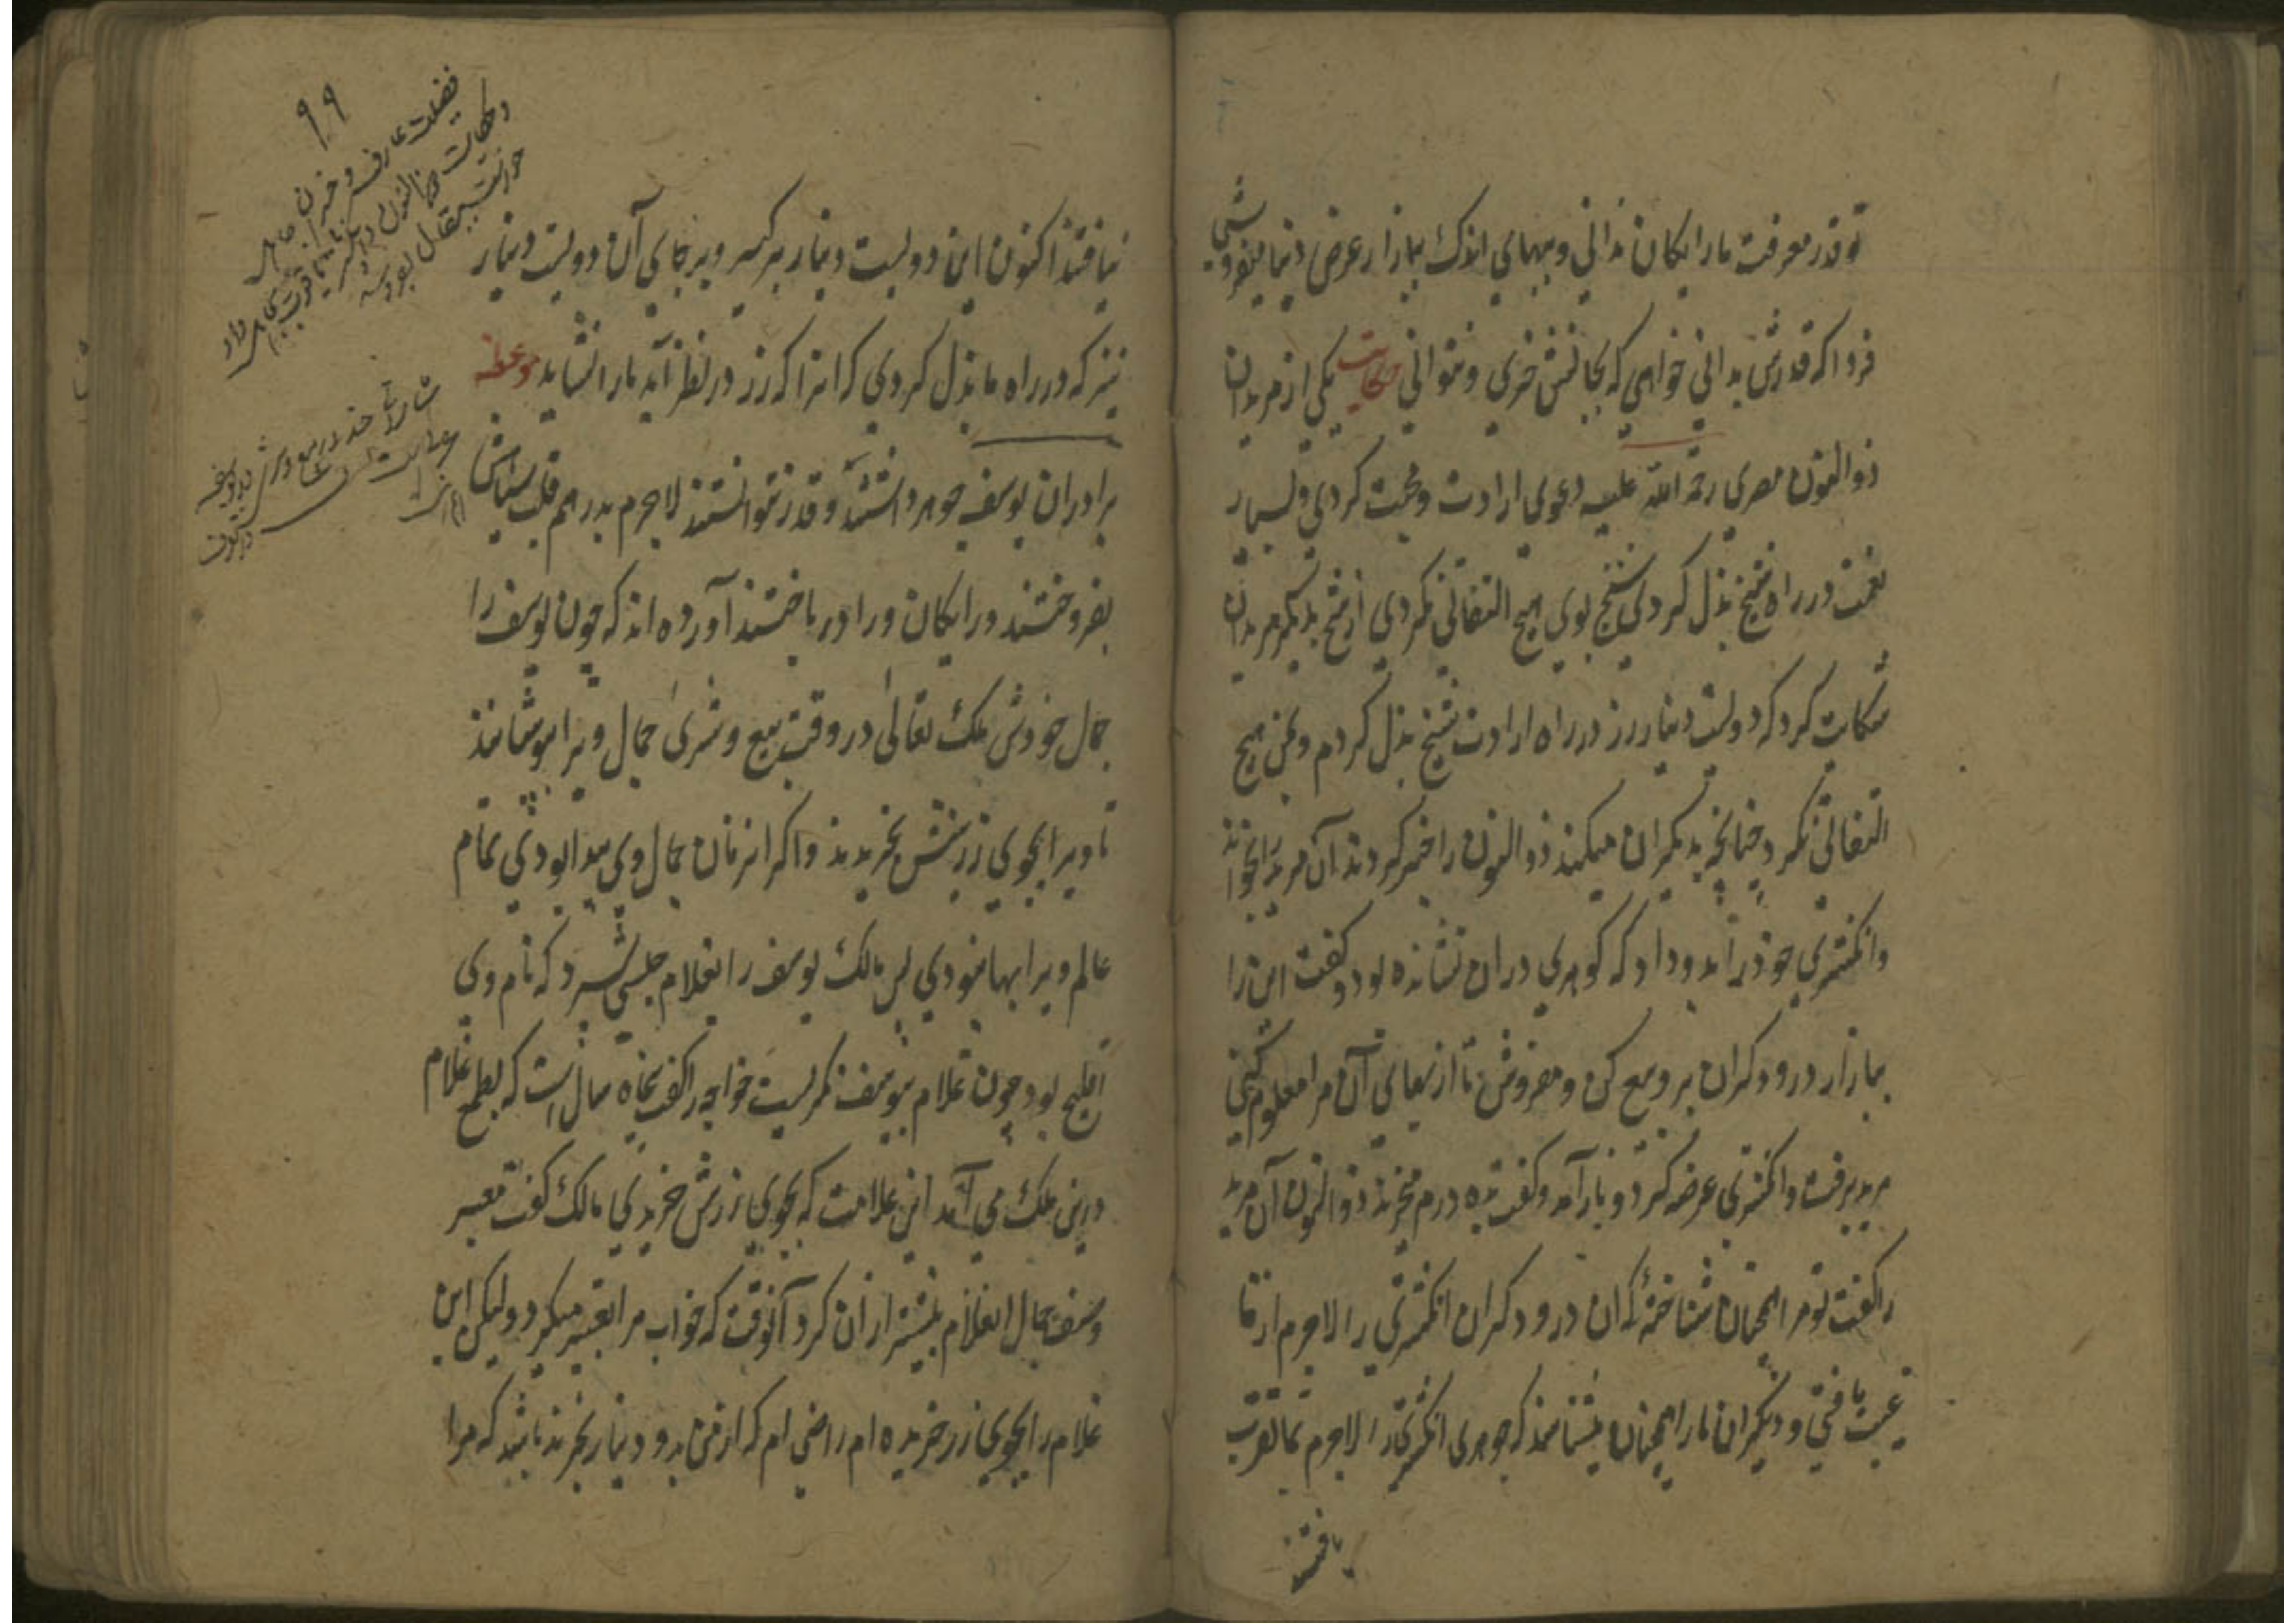 تو قدر معرفت ما رایکان ندانی و ببهای اندک ببازار عرض دنیا میفروشی
فردا که قدرش بدانی خواهی که بجانش خری و نتوانی حکایت یکی از مریدان
ذوالنون مصری رحمة الله علیه دعوی ارادت و محبت کردی و بسیار
نعمت در راه شیخ بذل کردی شیخ بوی هیچ التفاتی نکردی از شیخ بدیکر مریدان
شکایت کرد که دویست دینار زر در راه ارادت شیخ بذل کردم و بمن هیچ
التفاتی نکرد چنانچه بدیکران میکند ذوالنون را خبر کردند آن مرید را بخواند
وانکشتری خود را بدو داد که کوهری دران نشانده بود و کفت این را
ببازار درودکران بر و بیع کن و مفروش تا از بهای آن مرا معلوم کنی
مرید برفت و انکشتری عرضه کرد و باز آمد و کفت بده درم میخرند ذوالنون آن مرید
را کفت تو مرا همچنان شناختهٔ که آن درودکران انکشتری را لاجرم از ما
غیبت یافتی و دیکران ما را همچنان میشناسند که جوهری انکشتری را لاجرم بما تقرب
یافتند
یافتند اکنون این دویست دینار برکیر و بر جای آن دویست دینار
نیز که در راه ما بذل کردی کرا نرا که زر در نظر آید ما را نشاید موعظه
برادران یوسف جوهر داشتند و قدر نتوانستند لاجرم بدرهم قلب سیاش
بفروختند و رایکان ورا در باختند آورده اند که چون یوسف را
جمال خودش ملک تعالی در وقت بیع و شری جمال ویرا بپوشانند
تا ویرا بجوی زر بخش بخریدند و اکر انزمان جمال وی پیدا بودی تمام
عالم ویرا بها نبودی پس مالک یوسف را بغلام حبشی سپرد که نام وی
افلیح بود چون غلام بیوسف نکریست خواجه را کفت پنجاه سال است که بطمع غلام
درین ملک می آمد این غلامت که بجوی زرش خریدی مالک کفت معبر
وصف جمال این غلام بیشتر ازان کرد آنوقت که خواب مرا تعبیر میکرد و لیکن این
غلام را بجوی زر خریده ام راضی ام که از من بدو دینار بخرند باشد که مرا
۹۹
فضیلت عارف و
و حکایت ذوالنون